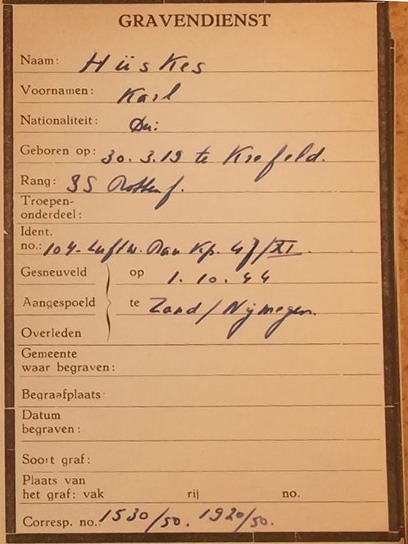 GRAVENDIENST
Naam: Hüskes
Voornamen: Karl
Nationaliteit: Du:
Geboren op: 30.3.19 te Krefeld.
Rang: SS Rottenf.
Troepen-
onderdeel:
Ident.
no.: 104-Luftw. Bau Kp. 47/XI.
Gesneuveld op 1.10.44
Aangespoeld te Zand/Nijmegen.
Overleden
Gemeente
waar begraven:
Begraafplaats:
Datum
begraven:
Soort graf:
Plaats van
het graf: vak rij no.
Corresp. no.: 1530/50. 1920/50.